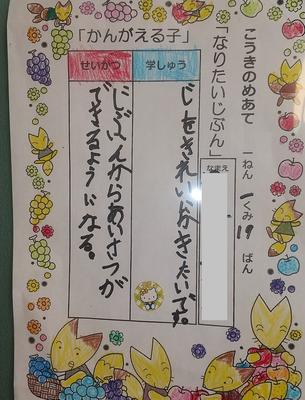 こうきのめあて
一ねん 1くみ 19ばん
「なりたいじぶん」
なまえ
「かんがえる子」
学しゅう
じをきれいにかきたいです。
せいかつ
じぶんからあいさつが
できるようになる。